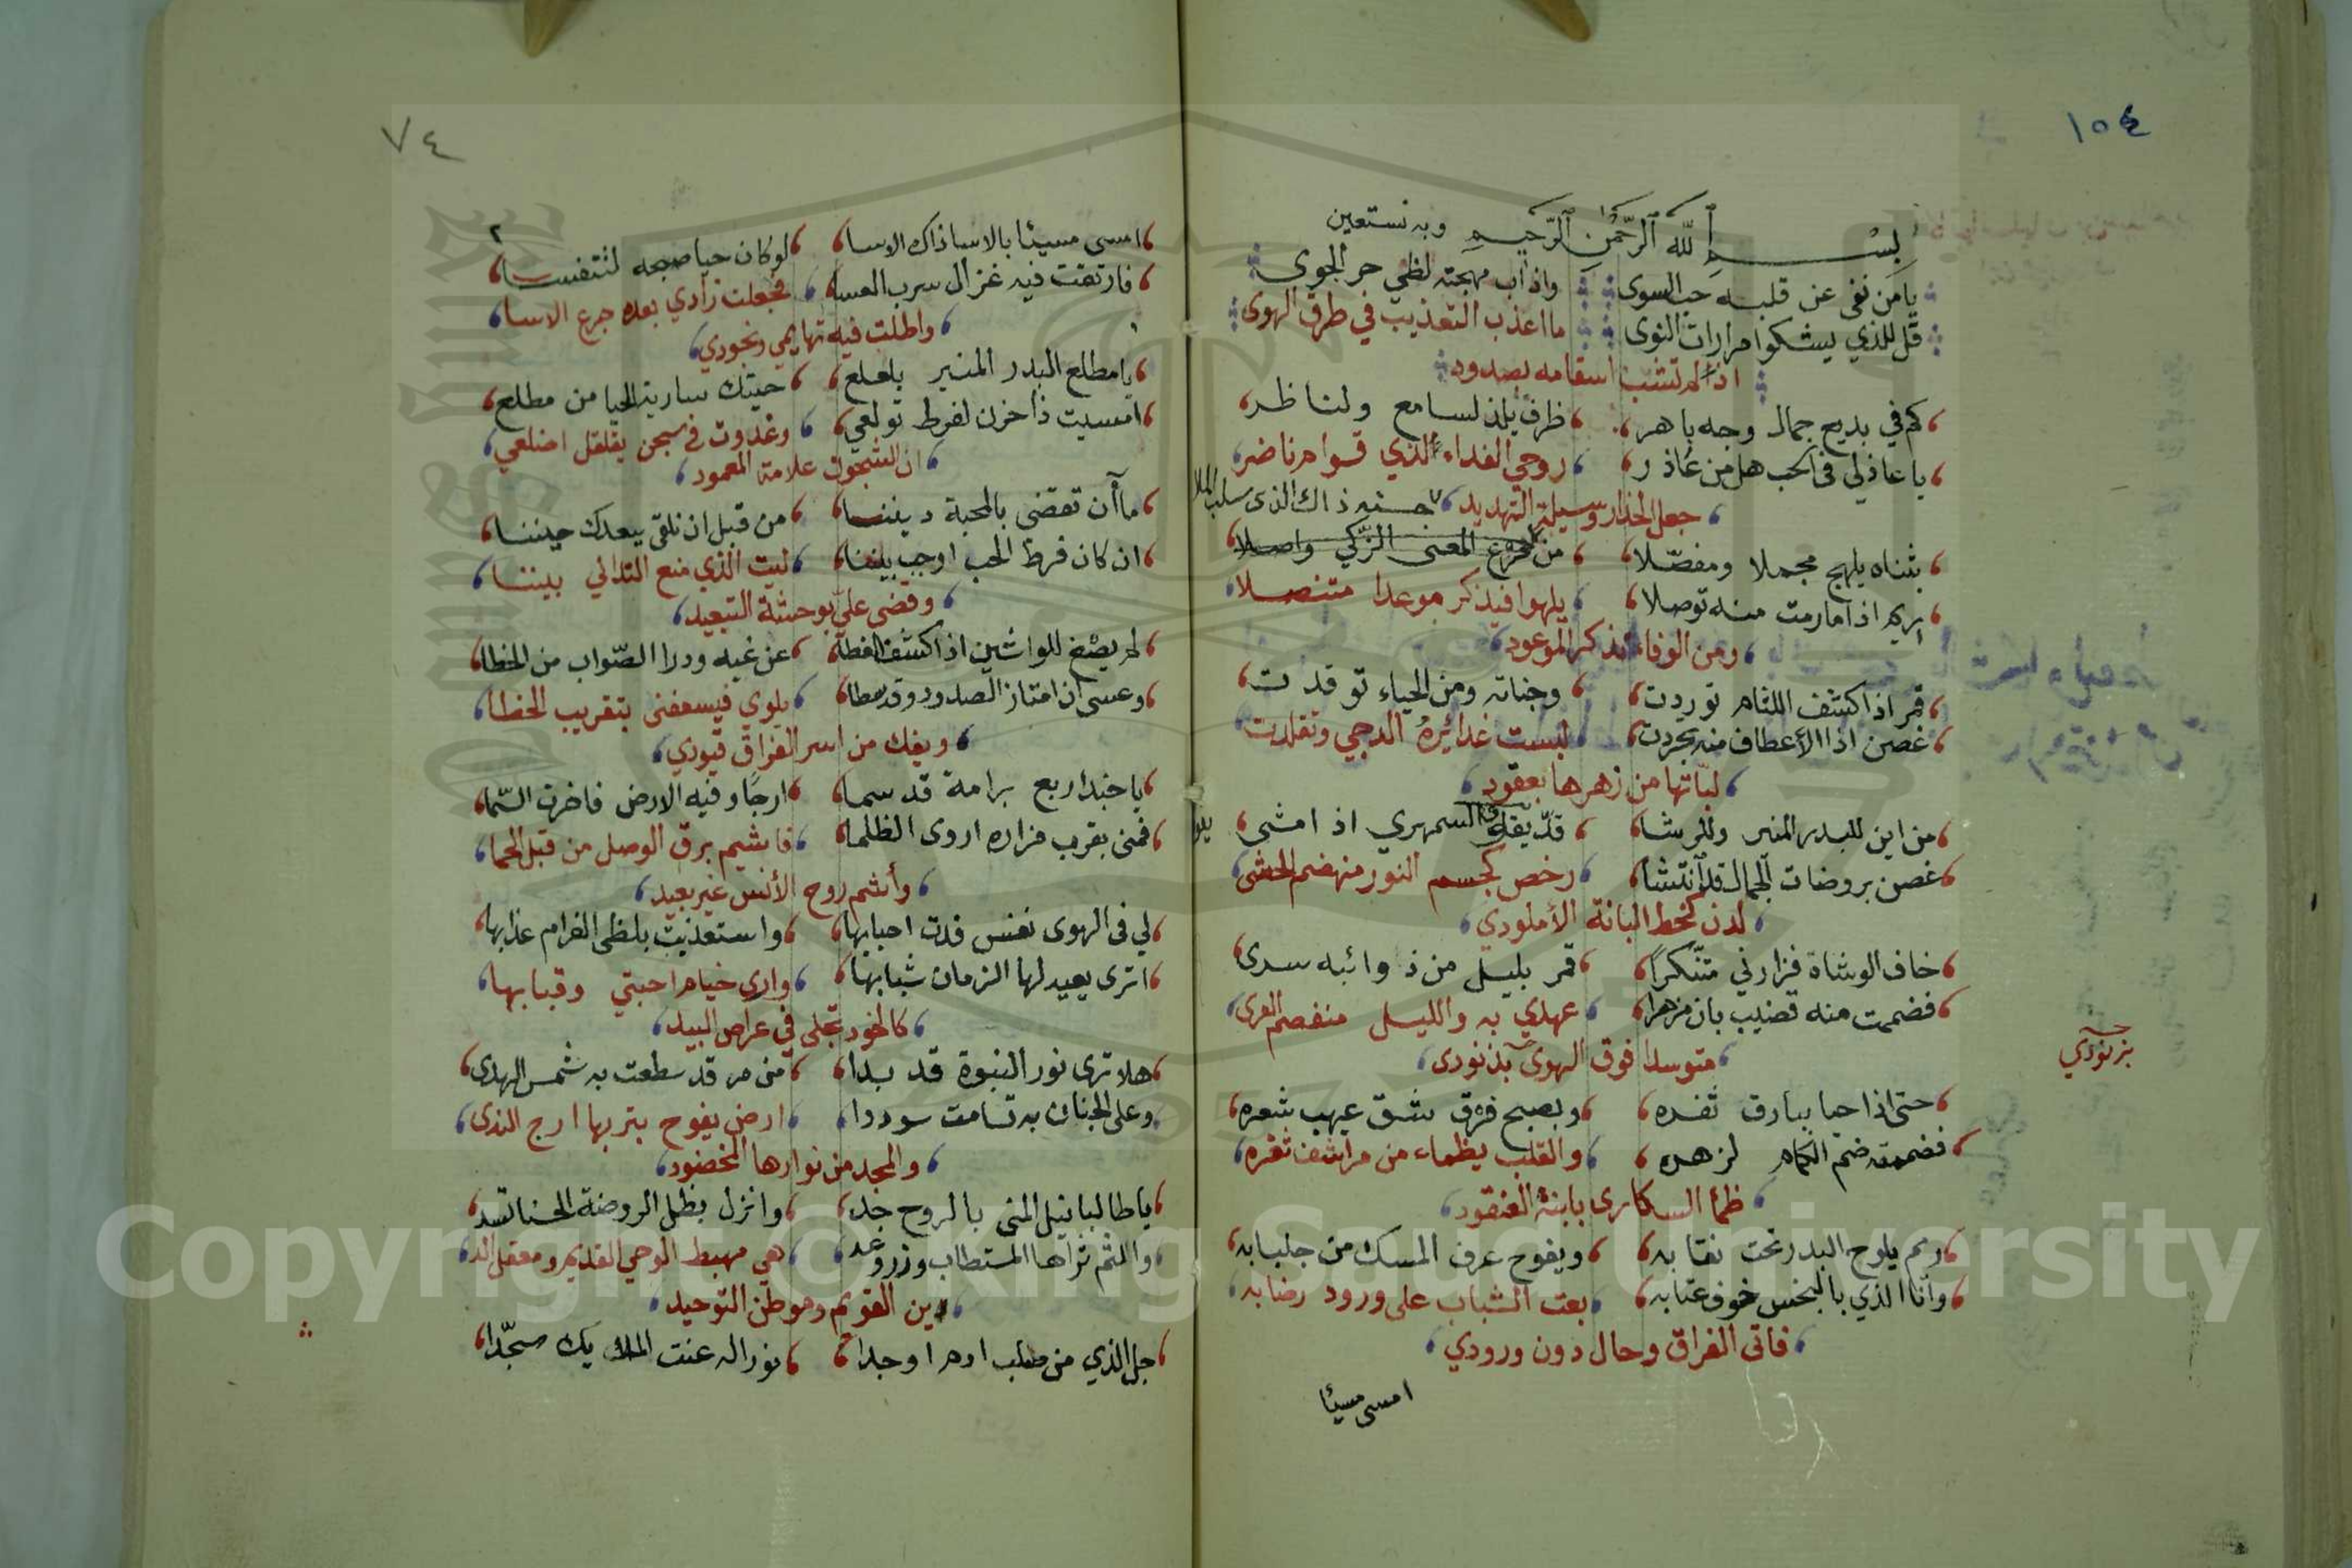 ١٥٤
بسم الله الرحمن الرحيم وبه نستعين
يا من نفى عن قلبه حب السوى واذاب مهجته لظى حر الجوى
قل للذي يشكوا مرارات النوى ما اعذب التعذيب في طرق الهوى
اذ لم تشب اسقامه بصدود
كم في بديع جمال وجه باهر ظرف يلذ لسامع ولناظر
يا عاذلي في الحب هل من عاذر روحي الفداء لذي قوام ناضر
جعل الحذار وسيلة التهديد
ذاك الذي سلب الملا
بثناه يلهج مجملا ومفصّلا من المعنى الزكي واصلا
ريم اذا ما رمت منه توصلا يلهوا فيذكر موعدا متنصلا
ومن الوفاء تذكر الموعود
قمر اذا كشف اللثام توردت وجناته ومن الحياء توقدت
غصن اذا الأعطاف منه تجردت لبست غدائرهُ الدجي وتقلدت
لبّاتها من زهرها بعقود
من اين للبدر المنير وللرشا قدّ يفوق السمهري اذ امشى
غصن بروضات الجمال قد انتشا رخص كجسم النور منهضم الحشى
لدن كخط البانة الأملودي
خاف الوشاة فزارني متنّكرًا قمر بليل من ذوائبه سرى
فضممت منه قضيب بان مزهرا عهدي به والليل منفصم العرى
متوسدا فوق الهوى بزنودى
بزنودي
حتى اذا حيا ببارق ثغره وبصبح فرق شق غيهب شعره
فضممته ضم الكمام لزهره والقلب يظماء من مراشف ثغره
ظمأ السكارى بابنة العنقود
ريم يلوح البدر تحت نقابه ويفوح عرف المسك من جلبابه
وأنا الذي بالبخس خوف عتابه بعت الشباب على ورود رضابه
فاتى الفراق وحال دون ورودي
امسى مسيئا
٧٤
٢
امسى مسيئا بالاسا ذاك الاسا لو كان حيا صبحه لتنفسا
فارتقت فيه غزال سرب العسا فجعلت زادي بعده جرع الاسا
واطلت فيه تهايمي ونجودي
يا مطلع البدر المنير بلعلع حيتك سارية الحيا من مطلع
امسيت ذا حزن لفرط تولعي وغدوت في سجن يقلقل اضلعي
ان الشجون علامة المعمود
ما آن تقتضى بالمحبة ديننا من قبل ان نلقى ببعدك حيننا
ان كان فرط الحب اوجب بيننا ليت الذي منع التداني بيننا
وقضى علي بوحشة التبعيد
لم يصخ للواشين اذ كشف الغطا عن غيه ودرا الصّواب من الخطا
وعسى ان امتاز الصدود وقد سطا يلوي فيسعفنى بتقريب الخطا
ويفك من اسر الفراق قيودي
يا حبذا ربع برامة قد سما ارجًا وفيه الارض فاخرت السّما
فمنى بقرب مزاره اروى الظلما فاشيم برق الوصل من قبل الحما
وأشم روح الأنس غير بعيد
لي في الهوى نفس فدت احبابها واستعذبت بلظى الغرام عذابها
اترى يعيد لها الزمان شبابها وارى خيام احبتي وقبابها
كالخود تجلى في عراص البيد
هلا ترى نور النبوة قد بدا من مر قد سطعت به شمس الهدى
وعلى الجنان به تسامت سوددا ارض يفوح بتربها ارج الندى
والمجد من نوارها المخضود
يا طالبا نيل المنى بالروح جد وانزل بظل الروضة الحسنا تسد
والثم ثراها المستطاب وزر وعد هي مهبط الوحي القديم ومعقل الد
دين القويم وموطن التوحيد
جل الذي من صلب ادم اوجدا نورا له عنت الملايك سجّدا
Copyright © King Saud University